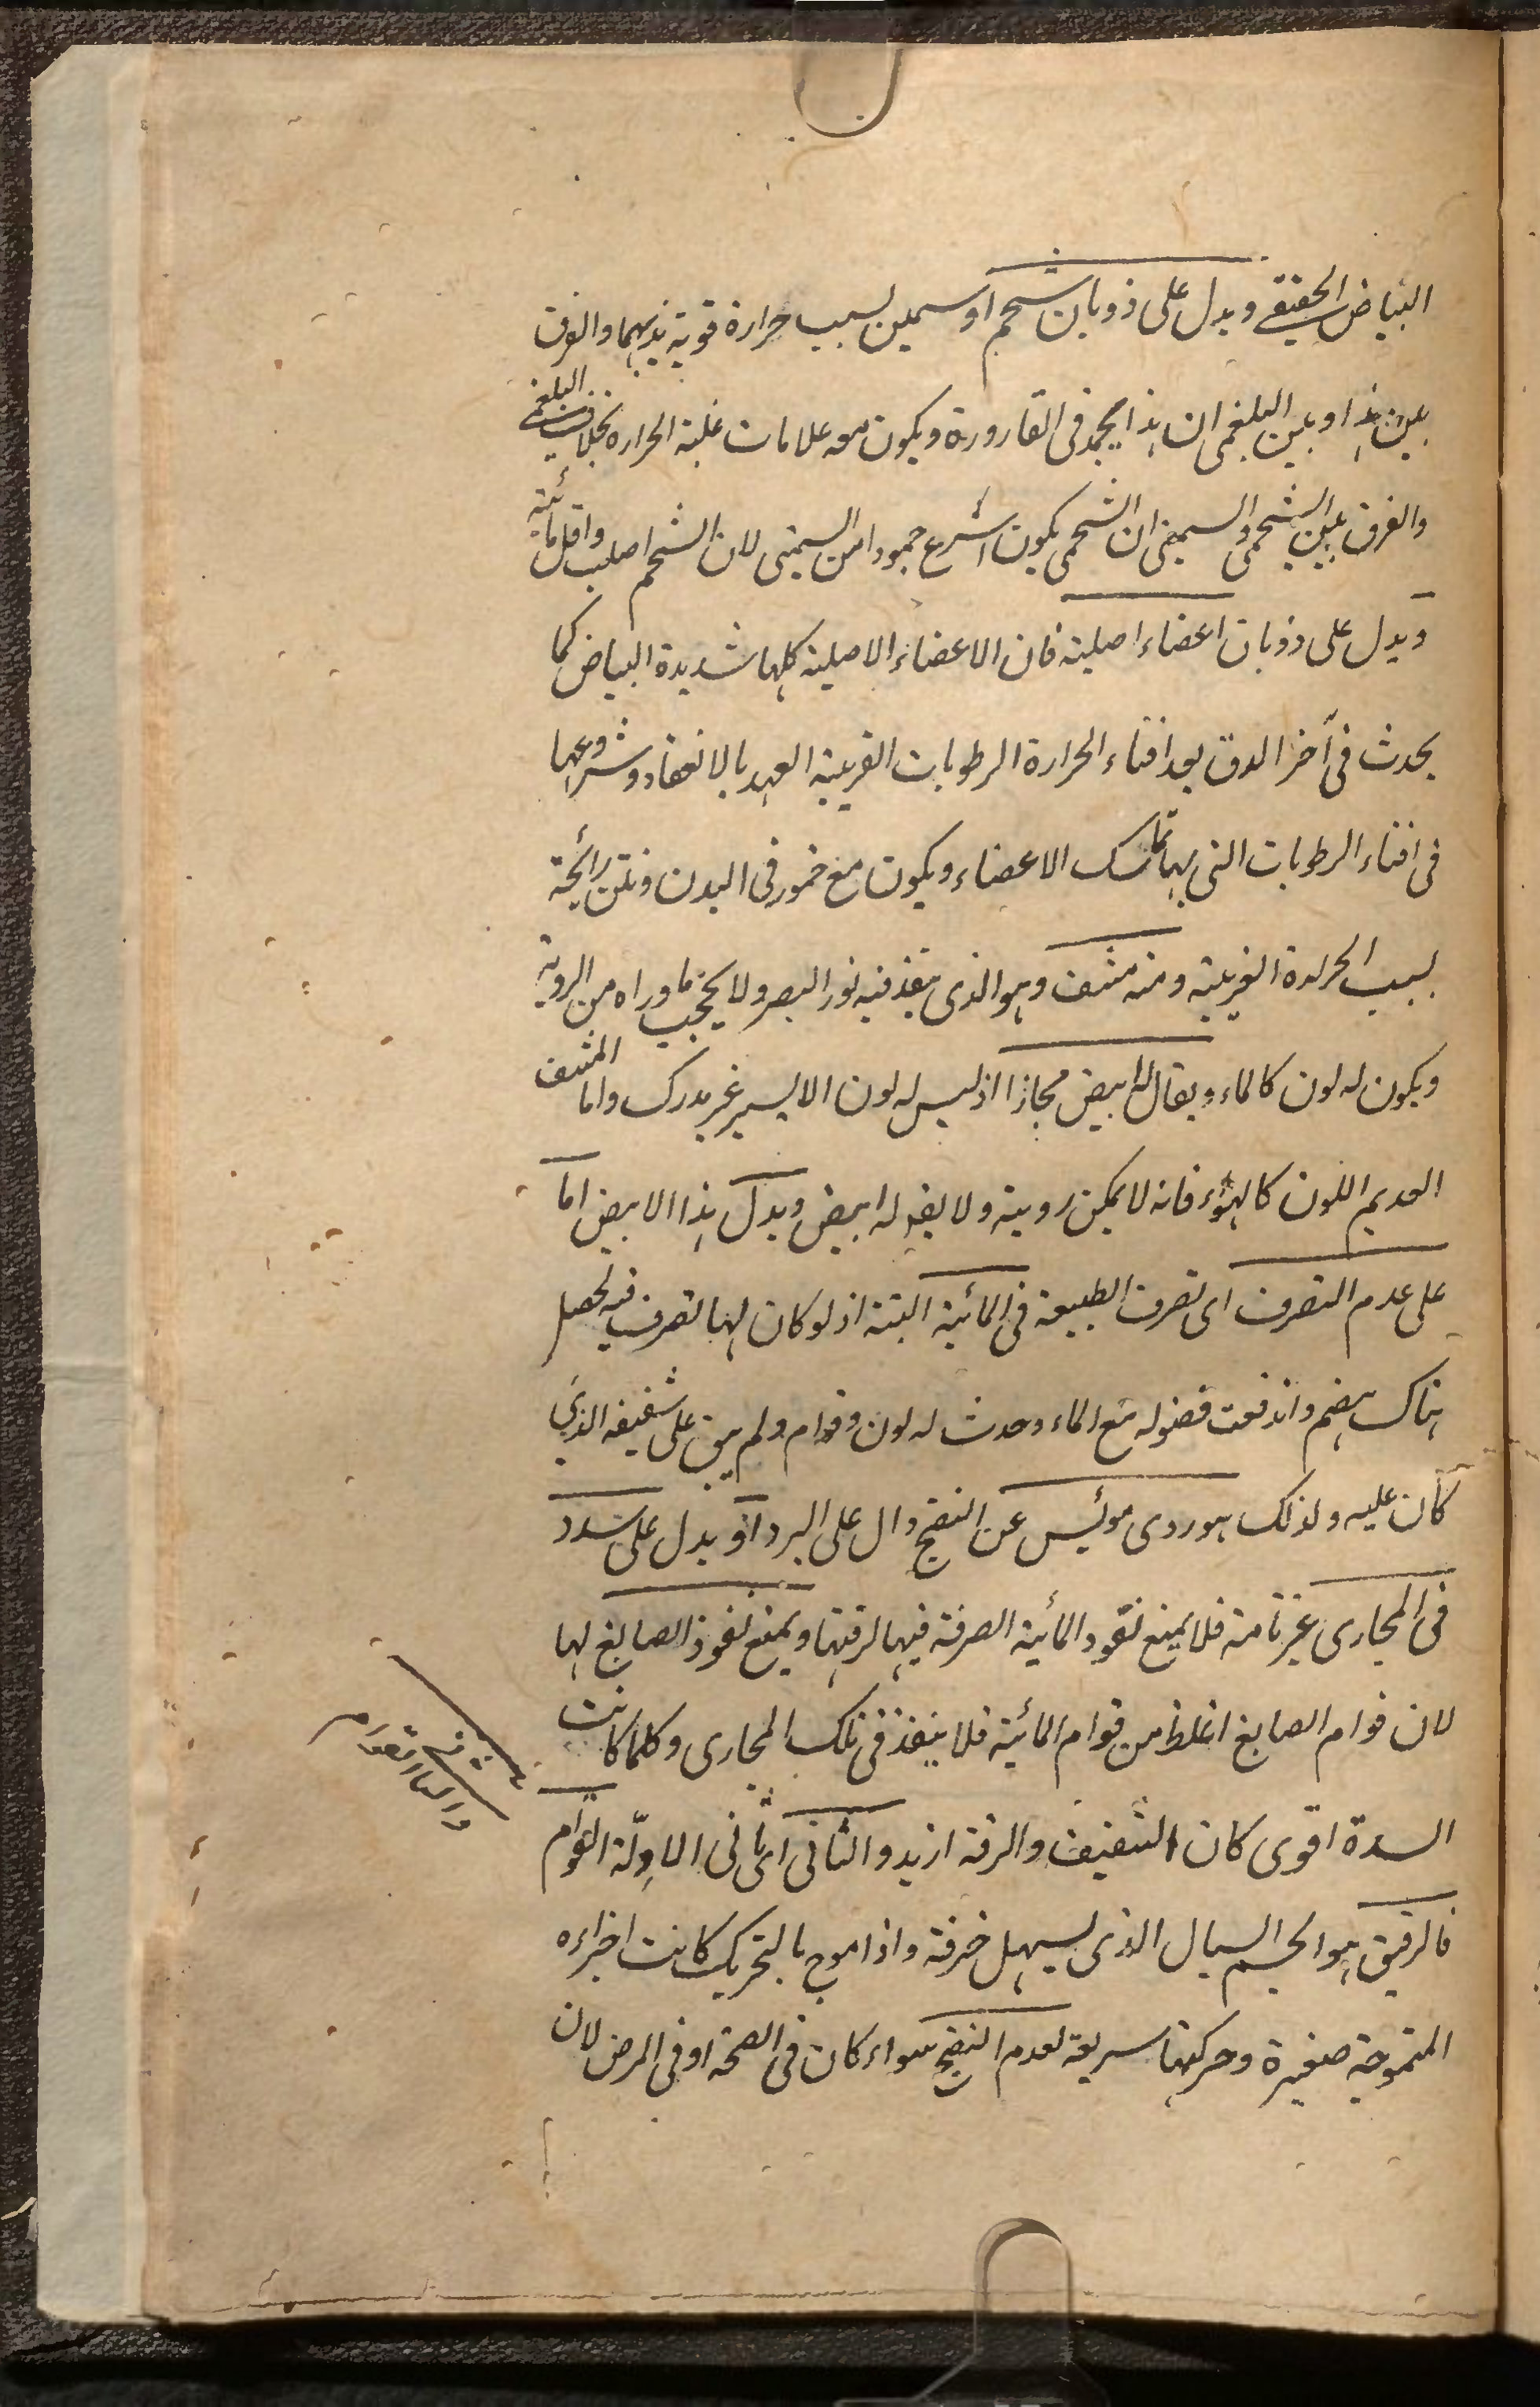 البیاض الحقیقی ویدل علی ذوبان شحم او سمین لسبب حرارة قویة یذیبهما والفرق
بین هذا وبین البلغمی ان هذا یجمد فی القارورة ویکون معه علامات غلبة الحراره بخلاف البلغمی
والفرق بین الشحمی والسمینی ان الشحمی یکون اسرع جمودا من السمینی لان الشحم اصلب واقل مائیة
ویدل علی ذوبان اعضاء اصلیة فان الاعضاء الاصلیة کلها شدیدة البیاض کما
یحدث فی آخر الدق بعد افناء الحرارة الرطوبات القریبة العهد بالانعقاد وشروعها
فی افناء الرطوبات التی بها تماسک الاعضاء ویکون مع ضمور فی البدن ونتن رائحة
لسبب الحرارة الغریبة ومنه مشف وهو الذی ینفذ فیه نور البصر ولا یحجب ما وراه من الرویة
ویکون له لون کالماء ویقال له ابیض مجازا اذ لیس له لون الا یسیر غیر مدرک واما المشف
العدیم اللون کالهواء فانه لا یمکن رویته ولا یقو له ابیض ویدل هذا الابیض اما
علی عدم التصرف ای تصرف الطبیعة فی المائیة البتة اذ لو کان لها تصرف فیه لحصل
هناک هضم واندفعت فضوله مع الماء وحدث له لون وقوام ولم یبق علی شفیفه الذی
کان علیه ولذلک هو ردی موئیس عن النضج دال علی البرد او یدل علی سدد
فی المجاری غیر تامة فلا یمنع نفوذ المائیة الصرفة فیها لرقتها ویمنع نفوذ الصابغ لها
لان قوام الصابغ اغلظ من قوام المائیة فلا ینفذ فی تلک المجاری وکلما کانت
السدة اقوی کان الشفیف والرقة ازید والثانی ای ثانی الادلة القوام
فالرقیق هو الجسم السیال الذی یسهل خرقه واذا موج بالتحریک کانت اجزاءه
المتموجة صغیرة وحرکتها سریعة لعدم النضج سواء کان فی الصحة او فی المرض لان